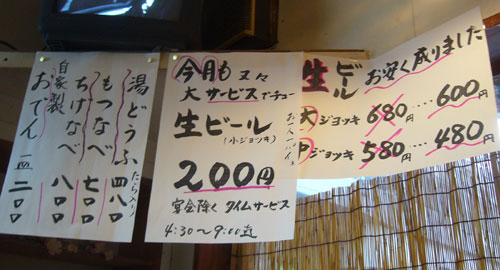 湯どうふ 四八〇
たら入り
もつなべ 七〇〇
ちげなべ 八〇〇
自家製
おでん 一皿 二〇〇
今月も又々
大サービスでチュー
生ビール
(小ジョッキ)
お一人一パイ
200円
宴会除く タイムサービス
4:30〜9:00迄
生ビール
お安く成りました
大ジョッキ 680円‥‥600円
中ジョッキ 580円‥‥480円